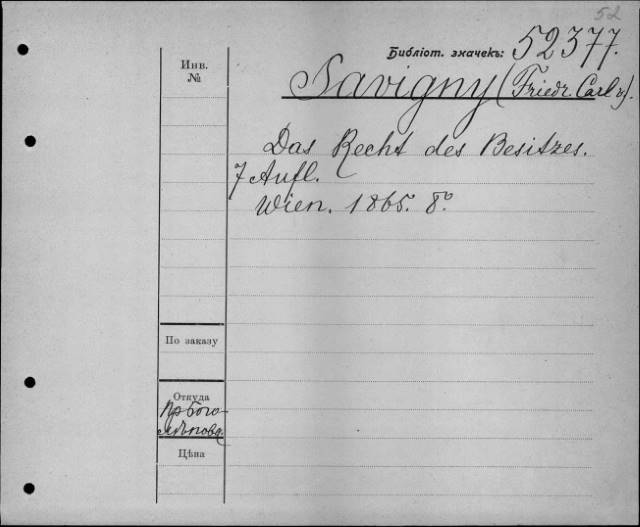 52
Библіот. значекъ: 52377.
Инв.
№
Savigny (Friedr. Carl v).
Das Recht des Besitzes.
7 Aufl.
Wien. 1865. 8°.
По заказу
Откуда
Пр Бого-
лѣпова
Цѣна